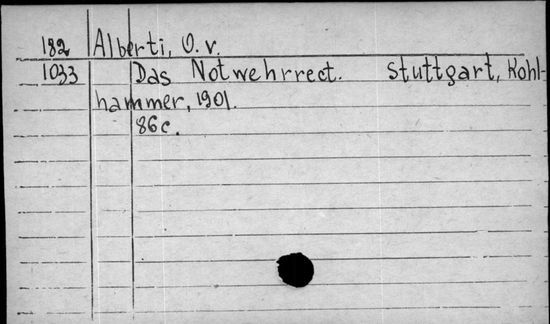 182 Alberti, O. v.
1033 Das Notwehrrect. Stuttgart, Kohl-
hammer, 1901.
86c.